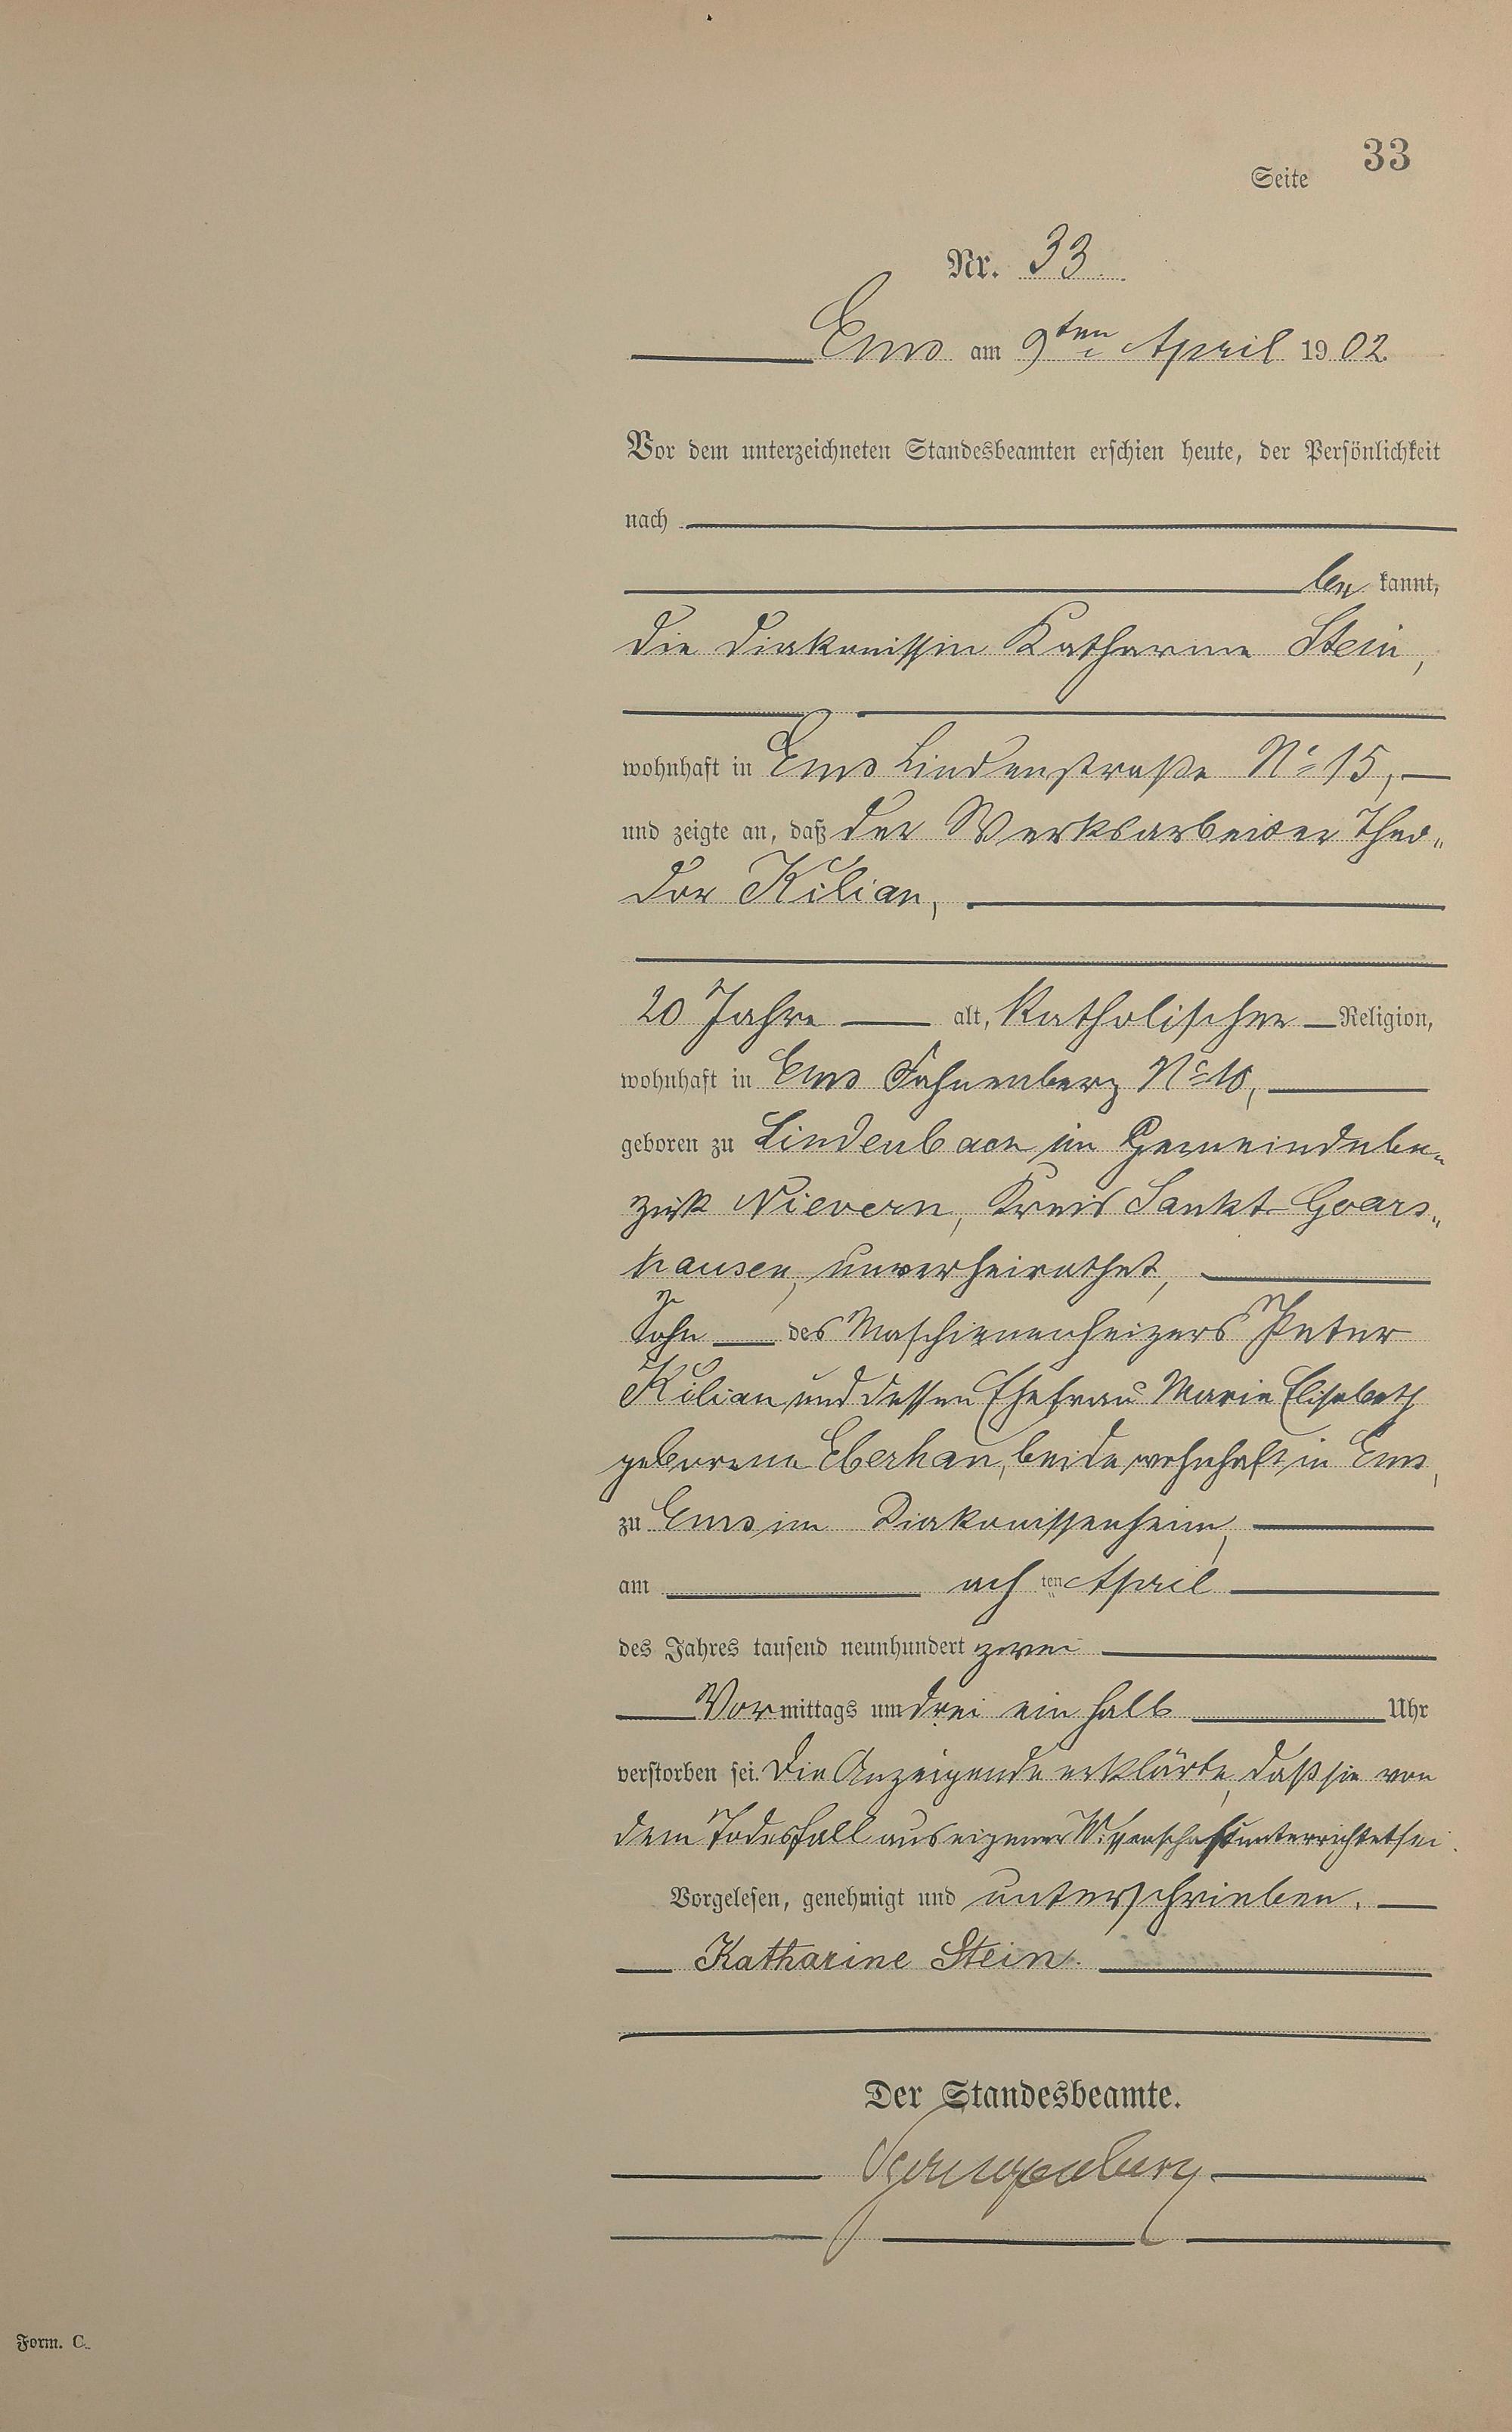 Seite 33
Nr. 33.
Ems am 9ten April 1902.
Vor dem unterzeichneten Standesbeamten erschien heute, der Persönlichkeit
nach
be kannt,
die Diakonissin Katharine Stein,
wohnhaft in Ems Lindenstraße No 15,
und zeigte an, daß der Werksarbeiter Theo„
dor Kilian,
20 Jahre alt, katholischer Religion,
wohnhaft in Ems Fahnenberg No 10,
geboren zu Lindenbach im Gemeindebe„
zirk Nievern, Kreis Sankt Goars„
hausen, unverheirathet,
Sohn des Maschienenheizers Peter
Kilian und dessen Ehefrau Marie Elisabeth
geborene Eberhan, beide wohnhaft in Ems,
zu Ems im Diakonissenheim,
am achten April
des Jahres tausend neunhundert zwei
Vormittags um drei ein halb Uhr
verstorben sei. Die Anzeigende erklärte, daß sie von
dem Todesfall aus eigener Wissenschaft unterrichtet sei.
Vorgelesen, genehmigt und unterschrieben.
Katharine Stein.
Der Standesbeamte.
Form. C.